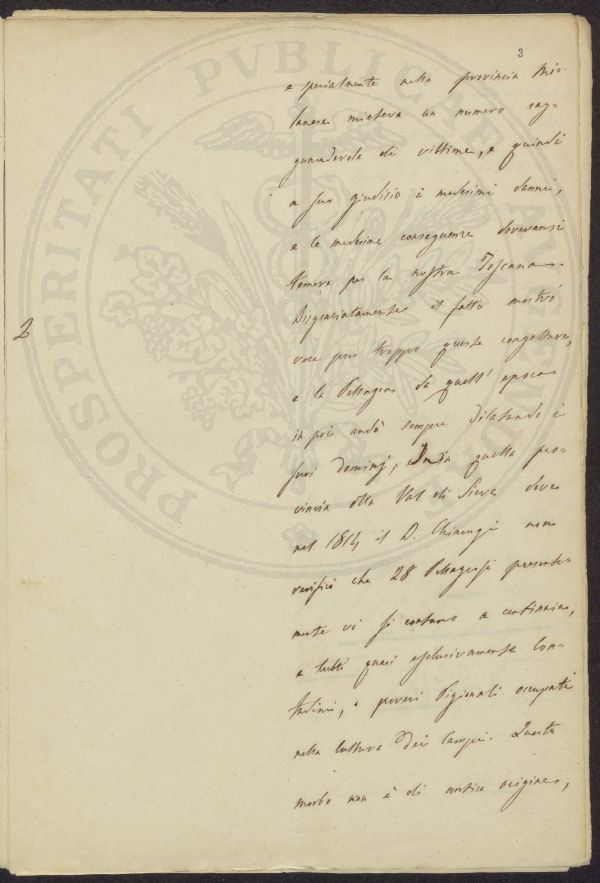 3
e specialmente nella provincia Mi-
lanese mieteva un numero rag-
guardevole di vittime, e quindi
a suo giudizio i medesimi danni,
e le medesime conseguenze dovevansi
temere per la nostra Toscana.
Disgraziatamente il fatto mostrò
vere pur troppo queste congetture,
e la Pellagra da quell' epoca
in poi andò sempre dilatando i
suoi dominj, In quella pro-
vincia della Val di Sieve dove
nel 1814 il D. Chiarugi non
verificò che 28 Pellagrosi presente-
mente vi si contano a centinaia,
e tutti quasi esclusivamente Con-
tadini, o poveri Pigionali occupati
nella Cultura dei Campi. Questo
morbo non è di antica origine,
2
PROSPERITATI PVBLICAE AVGENDAE